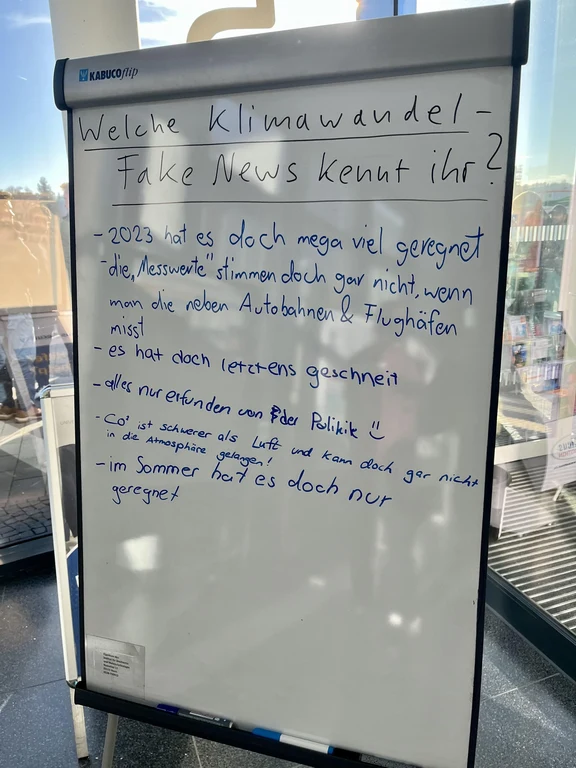 KABUCOflip
Welche Klimawandel-
Fake News kennt ihr?
- 2023 hat es doch mega viel geregnet
- die „Messwerte" stimmen doch gar nicht, wenn
man die neben Autobahnen & Flughäfen
misst
- es hat doch letztens geschneit
- alles nur erfunden von der Polikik ü
- Co² ist schwerer als Luft und kann doch gar nicht
in die Atmosphäre gelangen!
- im Sommer hat es doch nur
geregnet